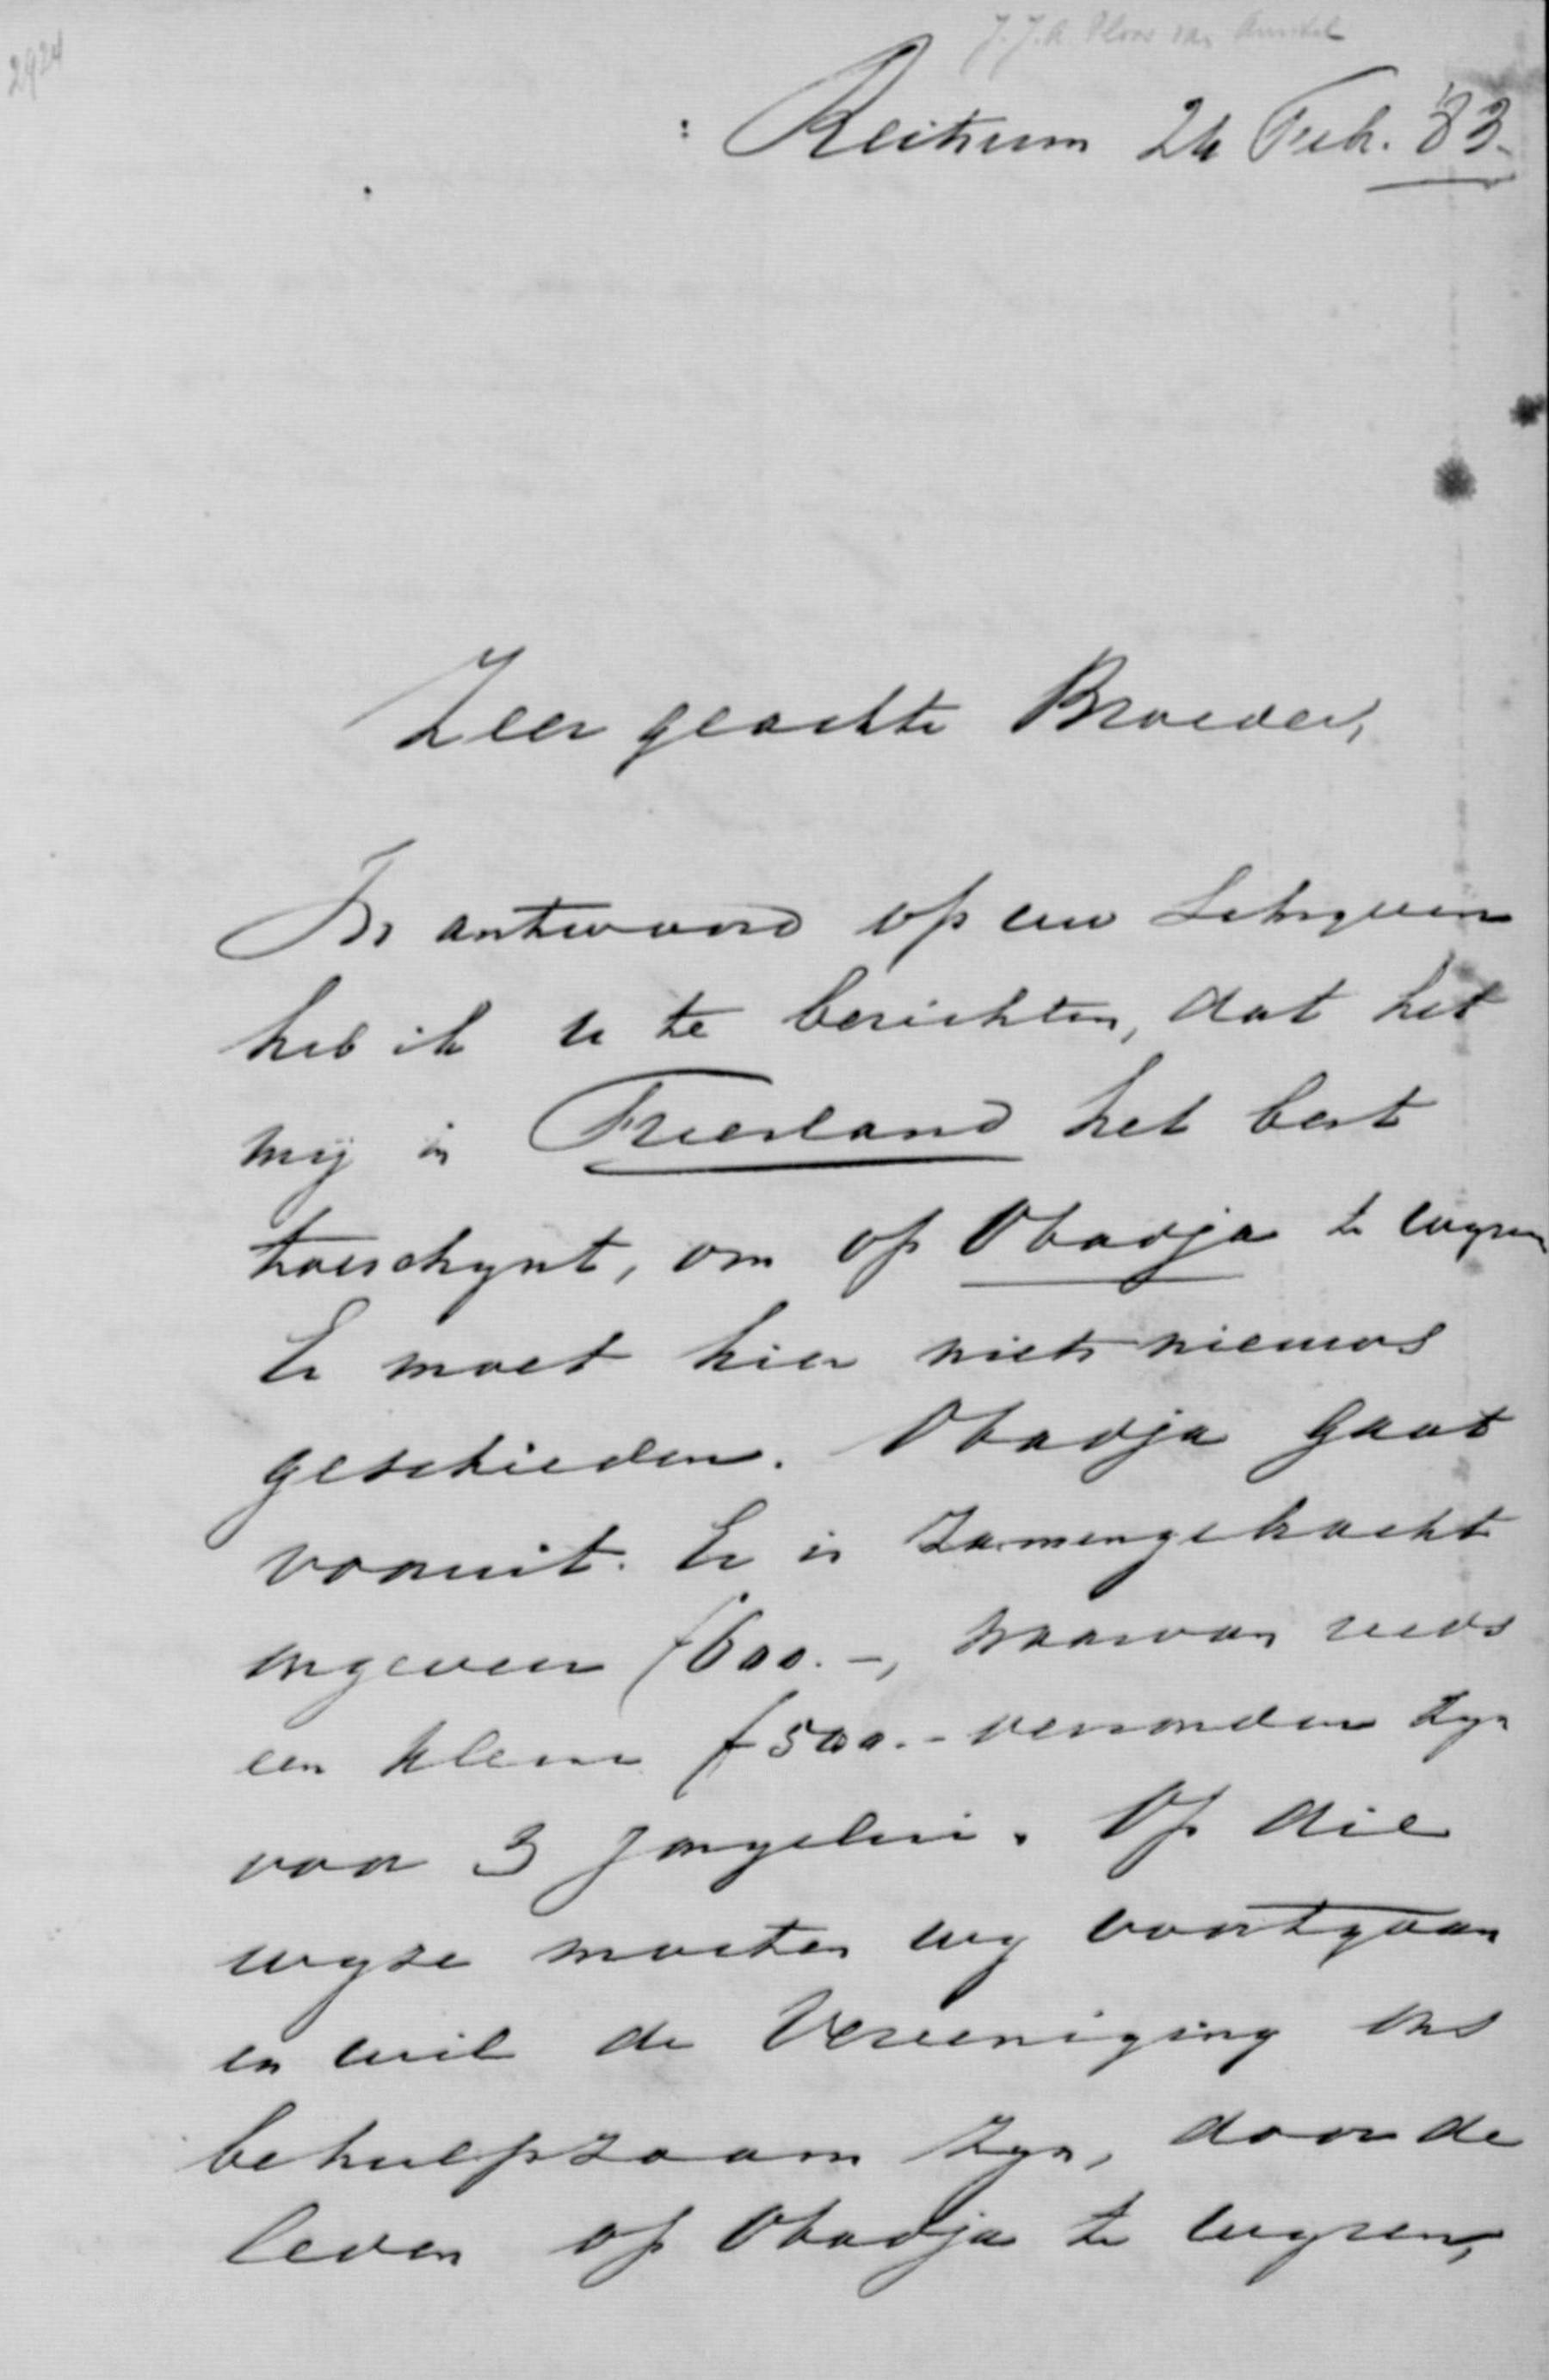 2924
J. J. A. Ploos van Amstel
Reitsum 24 Feb. '83.
Zeer geachte Broeder,
In antwoord op uw schryven
heb ik u te berichten, dat het
mij in Friesland het best
toeschynt, om op Obadja te wyzen
Er moet hier niets nieuws
geschieden. Obadja gaat
vooruit. Er is zamengebracht
ongeveer f 600.-, waarvan reeds
een kleine f 500.- verzonden zyn
voor 3 jongelui. Op die
wyze moeten wy voortgaan
en wil de Vereeniging ons
behulpzaam zyn, door de
leden op Obadja te wyzen,